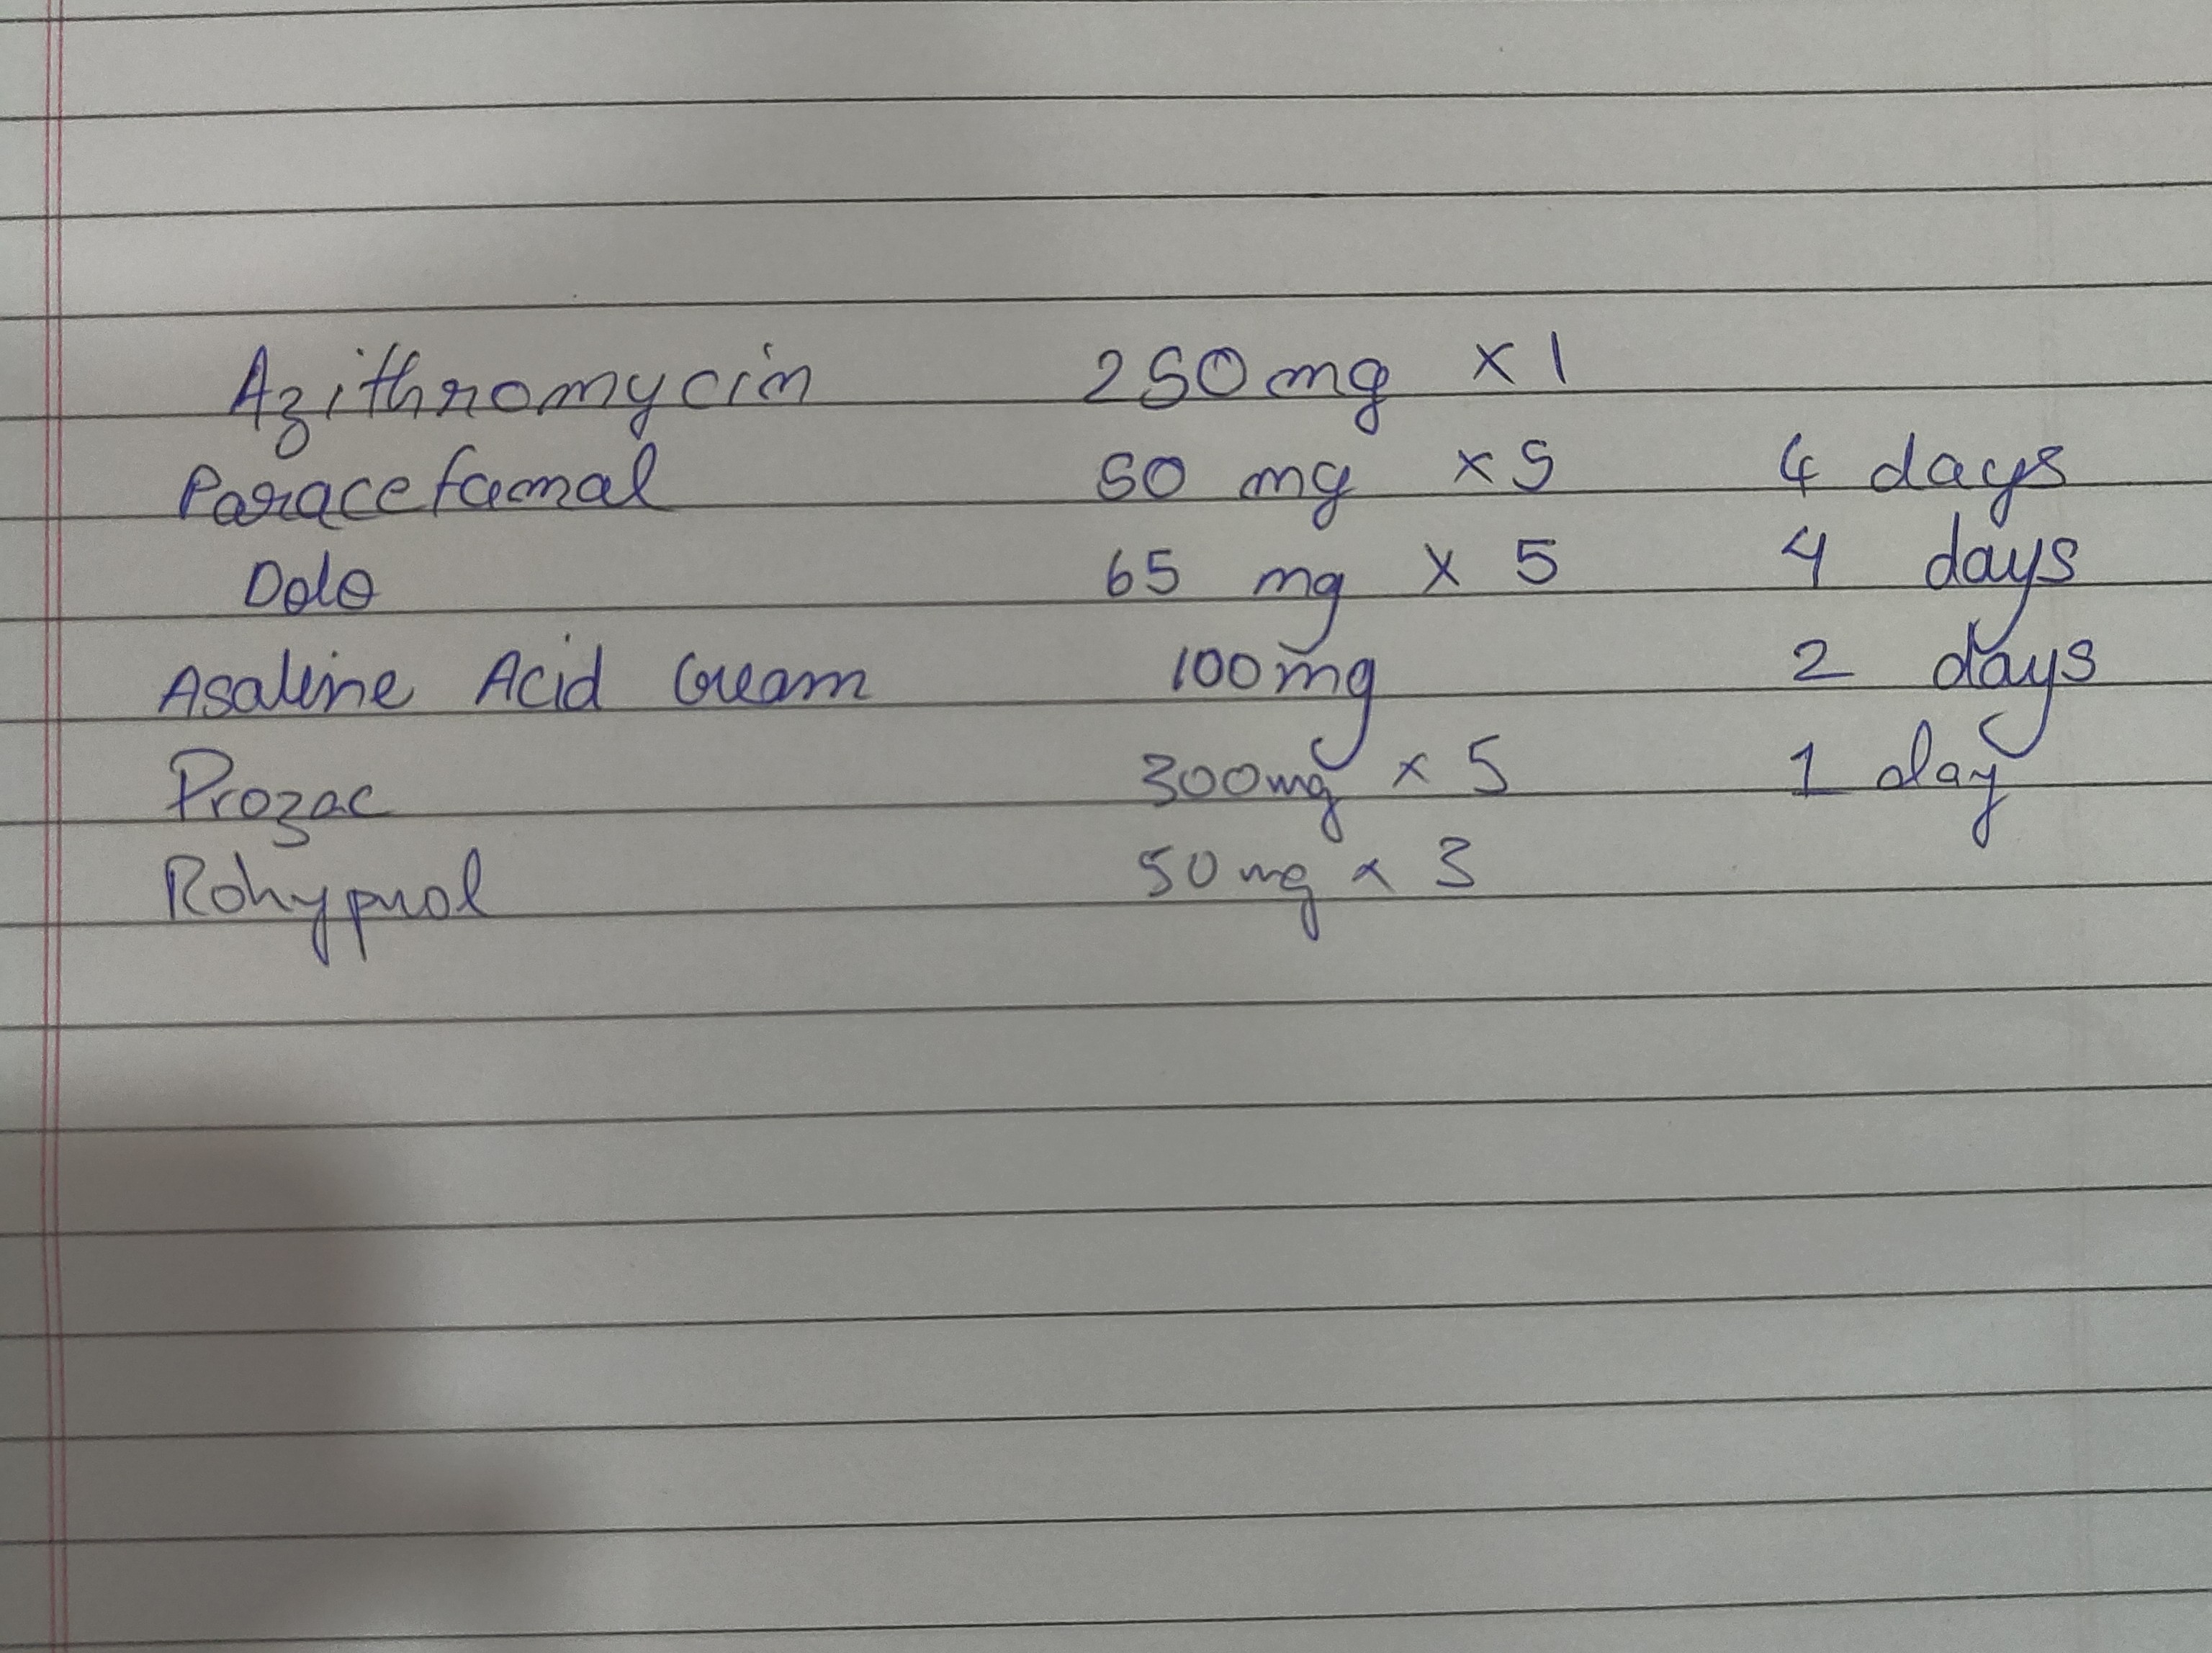 Azithromycin 250mg x 1
Paracetamal 50 mg x 5 4 days
Dolo 65 mg x 5 4 days
Asaleine Acid Cream 100mg 2 days
Prozac 300mg x 5 1 day
Rohypnol 50mg x 3